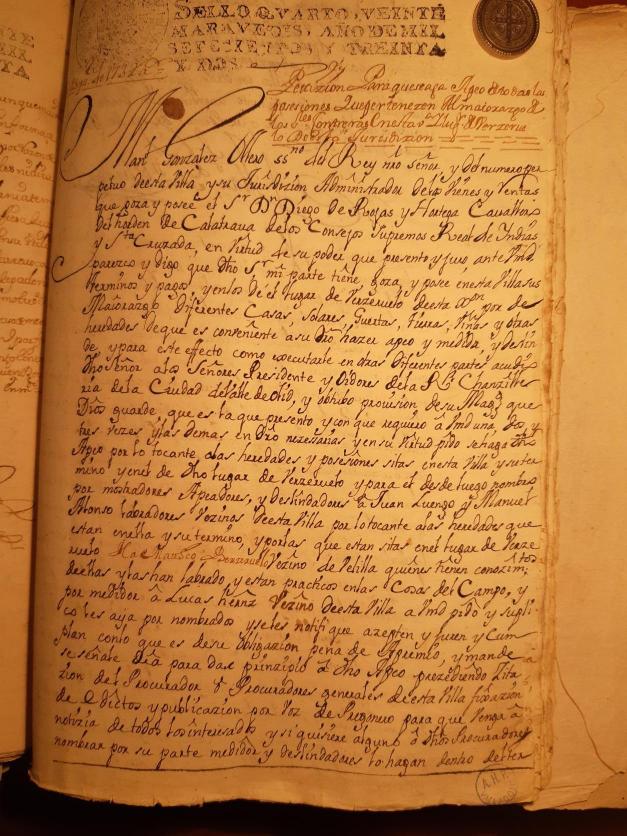 SELLO QVARTO, VEINTE
MARAVEDIS, AÑO DE MIL
SETECIENTOS Y TREINTA
Y DOS.
Petizion Para que se aga Apeo de todas las
posesiones que pertenezen Al maiorazgo de
los Contreras en esta Villa de Verzeruelo
Jurisdizion
Manl Gonzalez Ollero ssno del Rey nro señor, y del numero per
petuo de esta Villa y su Jurisdizion Administrador de los vienes y Rentas
que goza y posee el Sr Dn Diego de Roxas y Hortega Cavallero
del horden de Calatraua de los Consejos supremos Real de Indias
y Sta Cruzada, en virtud de su poder que presento y juro, ante Vmd
parezco y digo que dho Sr mi parte tiene, goza, y posee en esta Villa sus
terminos y pagos, y en los de el lugar de Verzeruelo de esta Jurn por de
Maiorazgo Diferentes Casas, solares, Guertas, tierras, viñas y otras
heredades de que es conveniente a su dro hazer apeo y medida, y deslin
de, y para este effecto como executarle en otras Diferentes partes acudió
dho señor a los señores Presidente y Oidores de la Rl Chanzille
ria de la Ciudad de Valladolid, y obtubo provision de su Magd que
Dios guarde, que es la que presento y con que requiero a Vmd una, dos, y
tres vezes y las demas en dro nezesarias y en su virtud pido se haga dho
Apeo por lo tocante a las heredades y posesiones sitas en esta Villa y su ter
mino y en el de dho lugar de Verzeruelo y para el desde luego nombro
por mostradores Apeadores, y deslindadores a Juan Luengo y Manuel
Alonso labradores Vezinos de esta Villa por lo tocante a las heredades que
estan en ella y su termino, y por las que estan sitas en el lugar de Verze
ruelo Vezino de Velilla quienes tienen conozimto
de ellas y las han labrado, y estan practicos en las Cosas del Campo, y
por medidor â Lucas hernz Vezino de esta Villa a Vmd pido y supli
co les aya por nombrados y se les notifique azepten y juren y Cum
plan conlo que es de su obligazion pena de Apremio, y mande
se señale dia para dar prinzipio â dho Apeo prezediendo Zita
zion del Procurador ô Procuradores generales de esta Villa fixazion
de edictos y publicazion por Voz de Pregonero para que Venga â
notizia de todos los interesados y si quisiere alguno ô dhos Procuradores
nombrar por su parte medidor y deslindadores lo hagan dentro de ter
A.H.P.